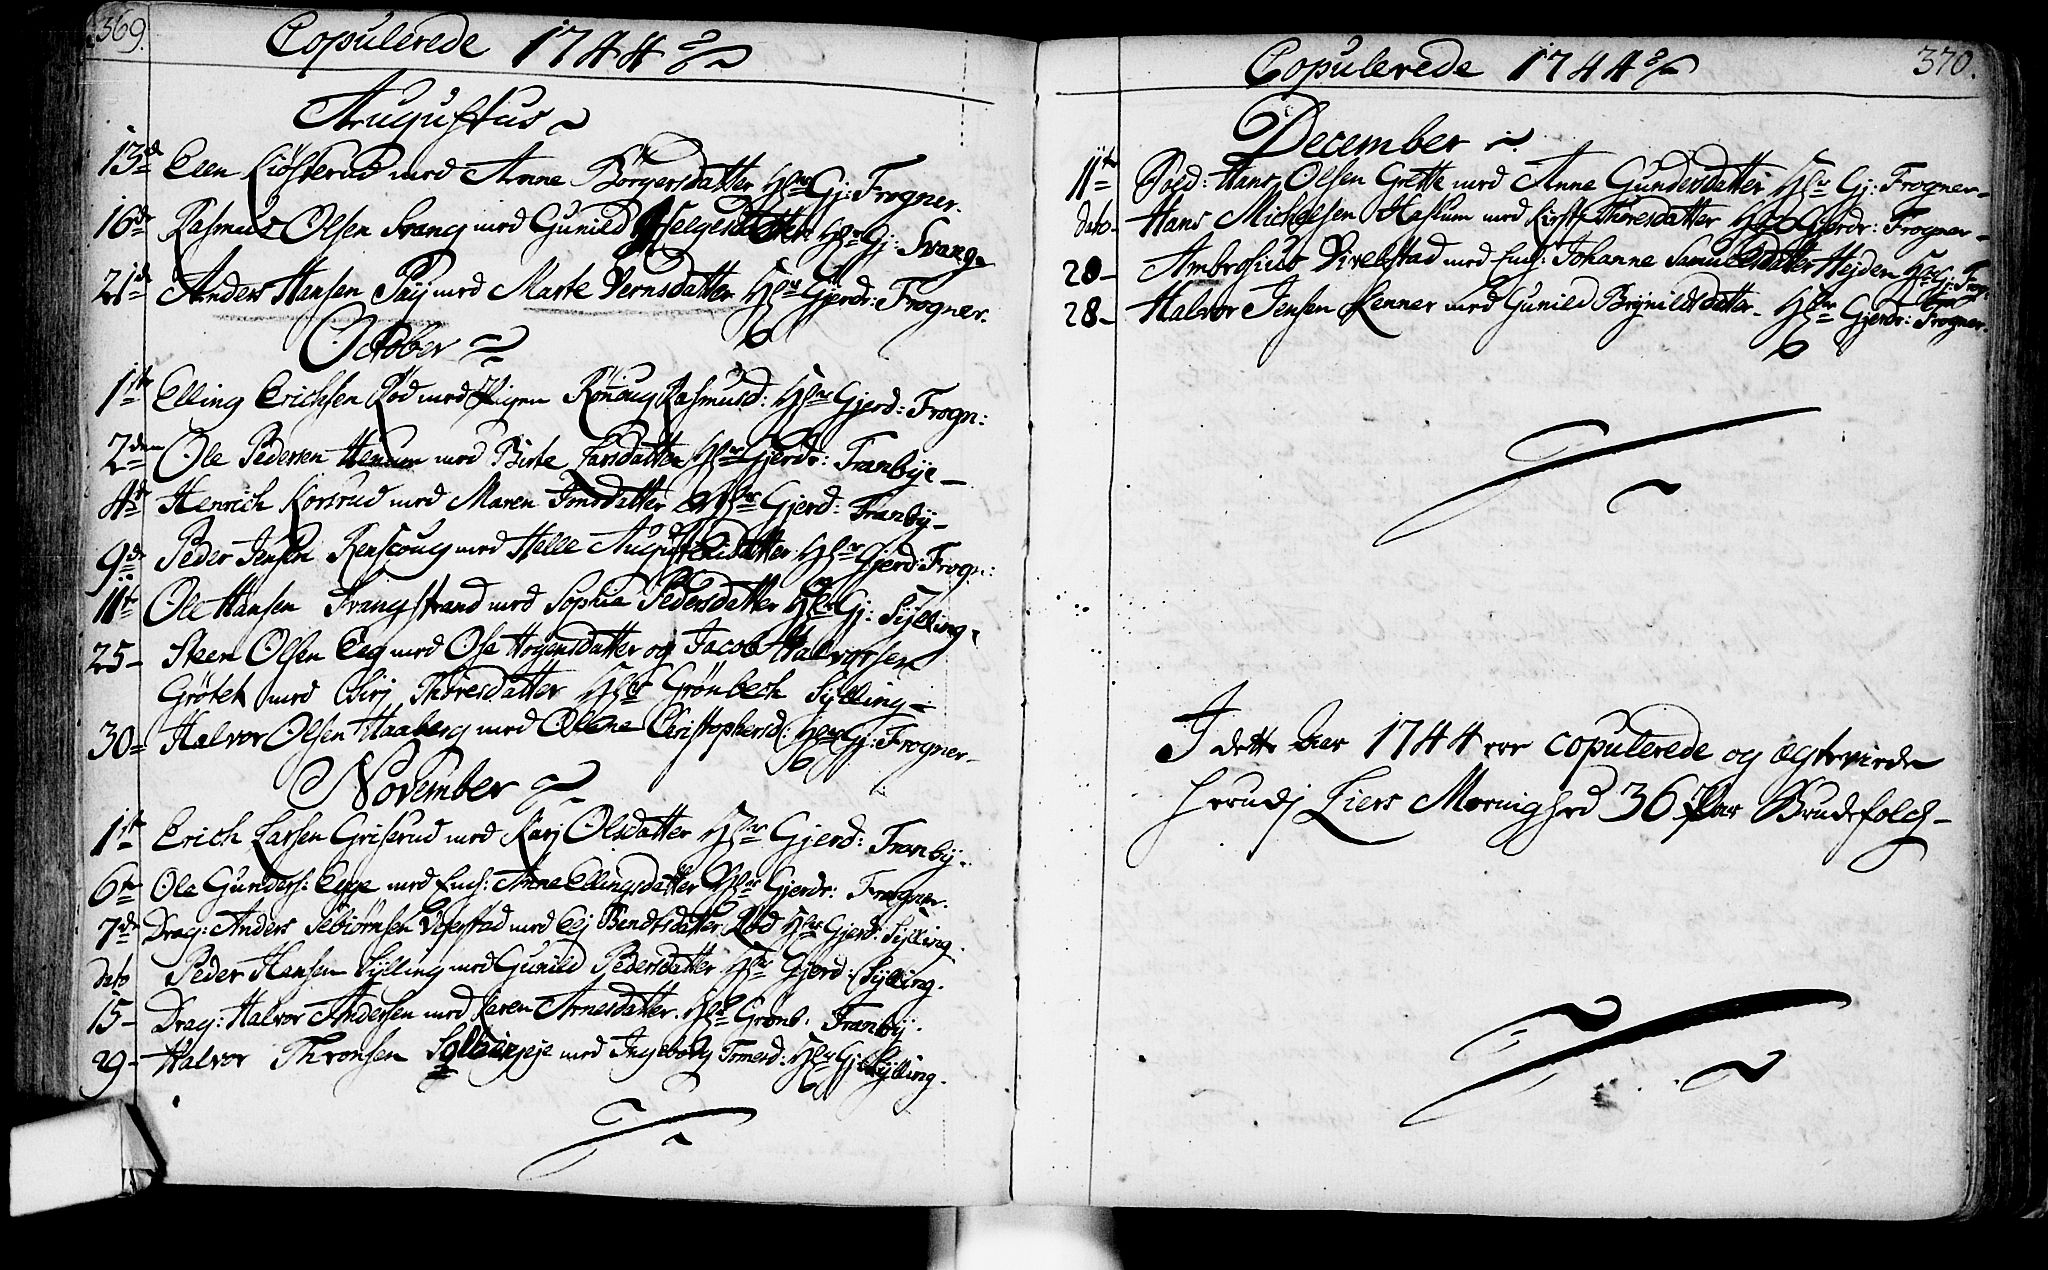 369.
Copulerede 1744
Augustus
13de Elen Kiösterud med Anne Börgersdatter Hr Gj: Frogner.
16de Rasmus Olsen Svang med Gunild Helgesdatter Hr Gj: Svang
21de Anders Hansen Paj med Marte Bernsdatter Hr Gjerdr: Frogner.
October
1te Elling Erichsen Röd med Pigen Rönaug Rasmusd: Hr Gjerd: Frogn:
2den Ole Pedersen Hennum med Birte Larsdatter Hr Gjerdr: Tranbÿe
4de Henrich Korsrud med Maren Jonsdatter Hr Gjerd: Tranbÿ
9de Peder Jensen Renscoug med Helle Augustinidatter Hr Gjerd: Frogn:
11te Ole Hansen Svangstrand med Sophia Pedersdatter Hr Gj: Sÿlling
25 Steen Olsen Eeg med Ose Hogensdatter og Jacob Halvorsen
Grötet med Siri Thoresdatter Hr Grönbech Sÿlling
30 Halvor Olsen Haaberg med Olene Christophersd: Hr Gj: Frogner
November
1te Erich Larsen Griserud med Karj Olsdatter Hr Gjerd: Tranbÿ.
6te Ole Gunders: Egge med Enck: Anne Ellingsdatter Hr Gjerdr: Frogner.
7de Drag: Anders Sebiörnsen Viverstad med Eej Bendtsdatter Röd Hr Gjerd: Sÿlling.
dato Peder Hansen Sÿlling med Gunild Pedersdatter Hr Gjerd: Sÿlling.
15 Drag: Halvor Andersen med Karen Arnesdatter. Hr Grönb: Tranbÿ.
29 Halvor Thronsen med Ingeborg Tomesd: Hr Gj: Sÿlling.
370.
Copulerede 1744
December
11te Sold: Hans Olsen Grette med Anne Gundersdatter Hr Gj: Frogner
dato Hans Michelsen Haskum med Kirsti Thoresdatter Hr Gjerdr: Frogner
20 Ambrosius Vivelstad med Enck: Johanne Samuelsdatter Hejden Hr Gj: Frog:
28 Halvor Jensen Kenner med Gunild Brÿnildsdatter Hr Gjerdr: Frogner.
I dette Aar 1744 ere copulerede og ægteviede
herudj Liers Menighed 36 Par Brudefolch